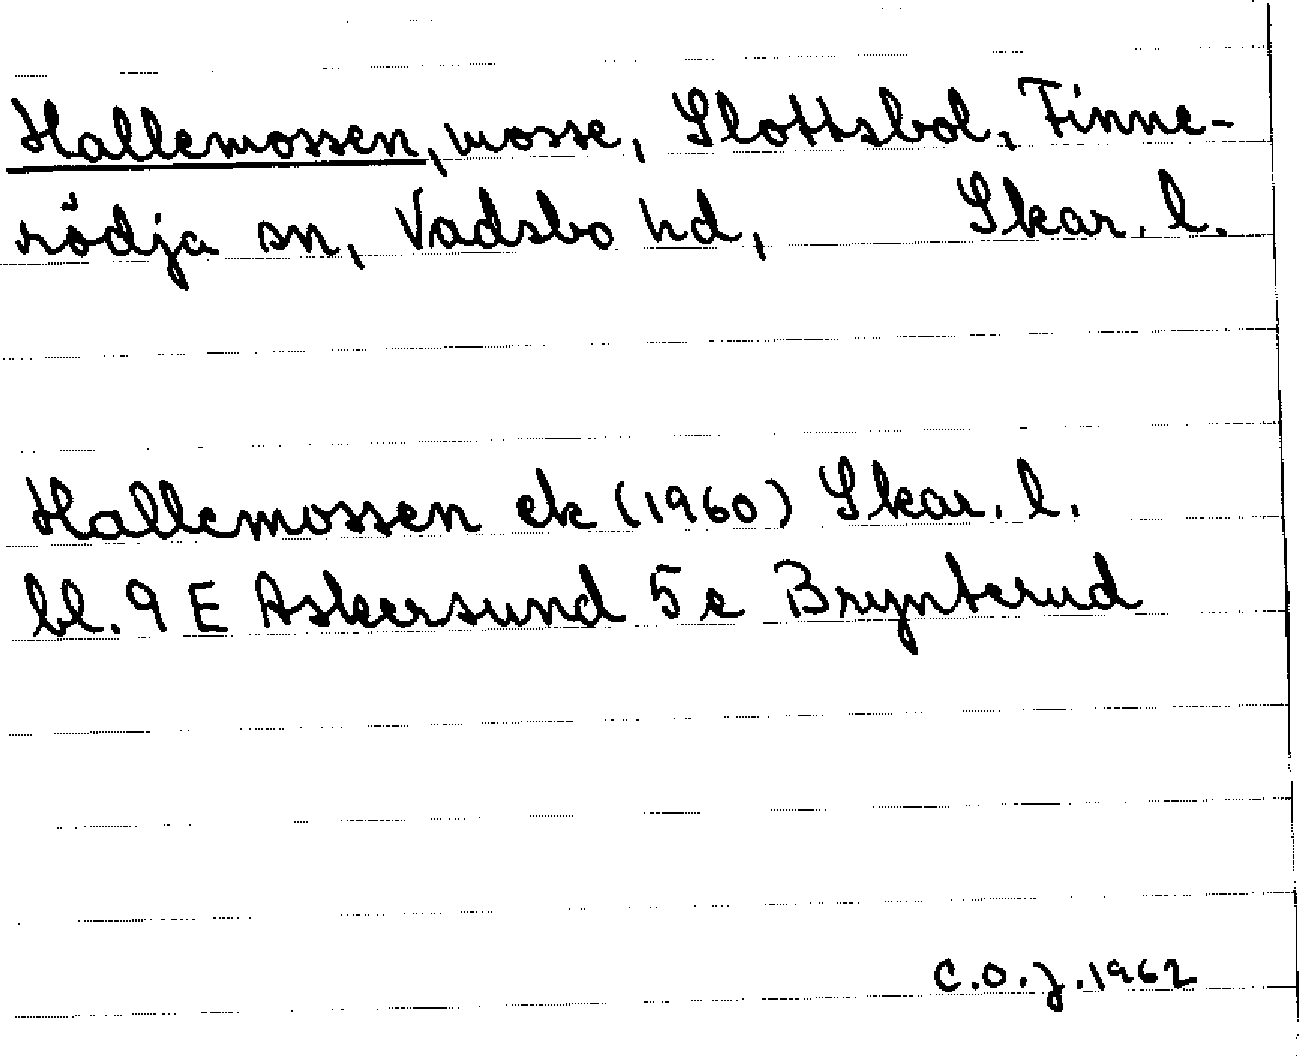 Hallemossen, mosse, Slottsbol, Finne-
rödja sn, Vadsbo hd, Skar. l.
Hallemossen ek (1960) Skar. l.
bl. 9 E Askersund 5 e Brynterud
C.O.J. 1962